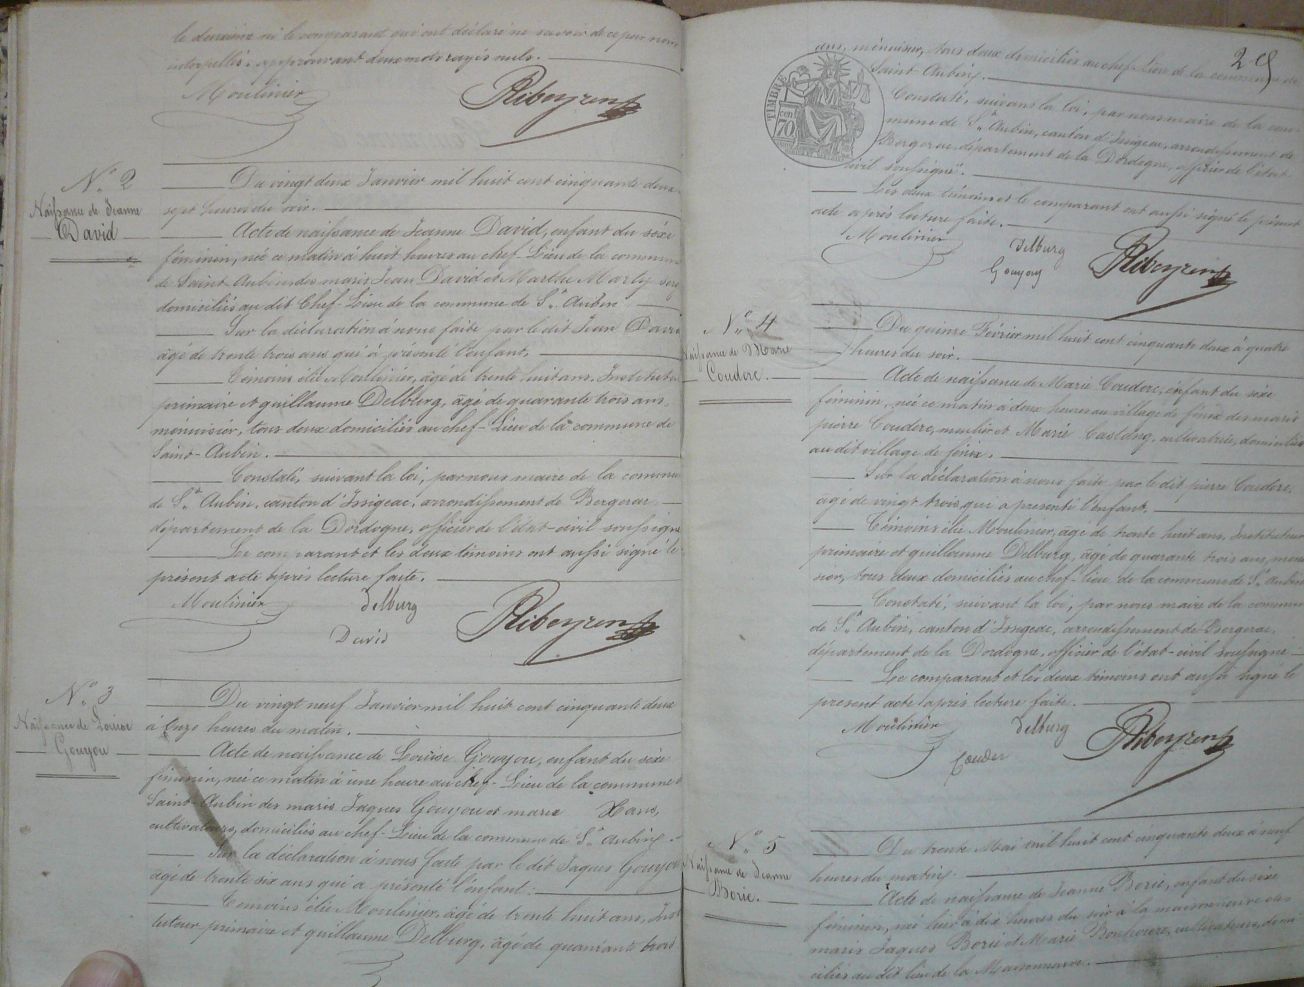 le deuxième ni le comparant qui ont déclaré ne savoir de ce par nous
interpellés. approuvant deux mots rayés nuls.
Moulinier Ribeyren
N.º 2
Naissance de Jeanne
David
Du vingt deux Janvier mil huit cent cinquante deux
sept heures du soir.
Acte de naissance de Jeanne David, enfant du sexe
féminin, née ce matin à huit heures au chef-Lieu de la commune
de Saint-Aubin des maris Jean David et Marthe Marty
domiciliés au dit Chef-Lieu de la commune de St. Aubin
Sur la déclaration à nous faite par le dit Jean David
âgé de trente trois ans qui à présenté l'enfant.
Témoins élie Moulinier, âgé de trente huit ans, Instituteur
primaire et guillaume Delburg, âgé de quarante trois ans,
menuisier, tous deux domiciliés au chef-Lieu de la commune de
Saint-Aubin.
Constaté, suivant la loi, par nous maire de la commune
de St. Aubin, canton d'Issigeac, arrondissement de Bergerac
département de la Dordogne, officier de l'état-civil soussigné
Le comparant et les deux témoins ont aussi signé le
présent acte après lecture faite.
Moulinier Delburg Ribeyren
David
N.º 3
Naissance de Louise
Gouyou
Du vingt neuf Janvier mil huit cent cinquante deux
à onze heures du matin.
Acte de naissance de Louise Gouyou, enfant du sexe
féminin, née ce matin à une heure au chef-Lieu de la commune de
Saint-Aubin des maris Jaques Gouyou et marie Hans,
cultivateurs, domiciliés au chef-Lieu de la commune de St. Aubin
Sur la déclaration à nous faite par le dit Jaques Gouyou
âgé de trente six ans qui a présenté l'enfant.
Témoins élie Moulinier, âgé de trente huit ans, Inst
tuteur primaire et guillaume Delburg, âgé de quarante trois
25
ans, menuisier, tous deux domiciliés au chef-lieu de la commune de
Saint-Aubin.
TIMBRE
70
Constaté, suivant la loi, par nous maire de la com-
mune de St. Aubin, canton d'Issigeac, arrondissement de
Bergerac, département de la Dordogne, officier de l'état-
civil soussigné.
Les deux témoins et le comparant ont aussi signé le présent
acte après lecture faite.
Moulinier Delburg Ribeyren
Gouyou
N.º 4
Naissance de Marie
Couderc.
Du quinze Février mil huit cent cinquante deux à quatre
heures du soir.
Acte de naissance de Marie Couderc, enfant du sexe
féminin, née ce matin à deux heures au village de fénix des maris
pierre Couderc, meunier et Marie Castang, cultivatrice, domiciliés
au dit village de fénix.
Sur la déclaration à nous faite par le dit pierre Couderc,
âgé de vingt trois, qui a présenté l'enfant.
Témoins élie Moulinier, âgé de trente huit ans, Instituteur
primaire et guillaume Delburg, âgé de quarante trois ans, menui
sier, tous deux domiciliés au chef-lieu de la commune de St. Aubin
Constaté, suivant la loi, par nous maire de la commune
de St. Aubin, canton d'Issigeac, arrondissement de Bergerac,
département de la Dordogne, officier de l'état-civil soussigné
Le comparant et les deux témoins ont aussi signé le
présent acte après lecture faite.
Moulinier Delburg Ribeyren
Couder
N.º 5
Naissance de Jeanne
Borie.
Du trente Mai mil huit cent cinquante deux à neuf
heures du matin.
Acte de naissance de Jeanne Borie, enfant du sexe
féminin, née hier à dix heures du soir à la maisonneuve des
maris Jaques Borie et Marie cultivateurs, domi-
ciliés au dit lieu de la Maisonneuve.